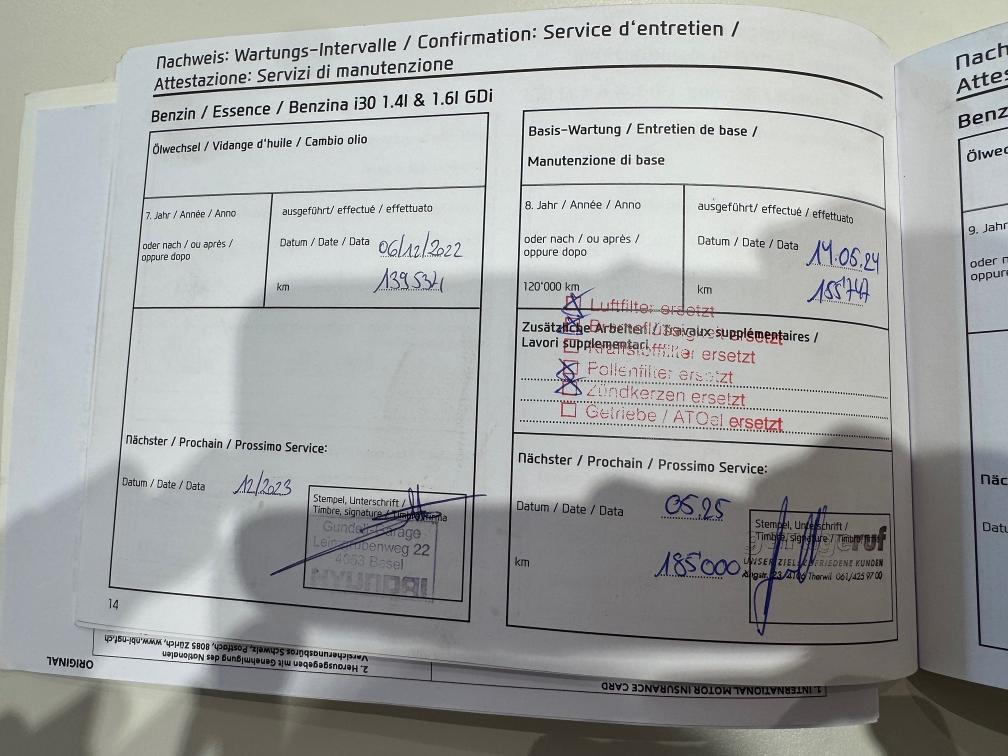 Nachweis: Wartungs-Intervalle / Confirmation: Service d'entretien /
Attestazione: Servizi di manutenzione
Benzin / Essence / Benzina i30 1.4l & 1.6l GDi
Ölwechsel / Vidange d'huile / Cambio olio
7. Jahr / Année / Anno
oder nach / ou après /
oppure dopo
ausgeführt/ effectué / effettuato
Datum / Date / Data 06/12/2022
km 139531
Nächster / Prochain / Prossimo Service:
Datum / Date / Data 12/2023
Stempel, Unterschrift /
Timbre, signature /
Garage
22
Basel
14
Basis-Wartung / Entretien de base /
Manutenzione di base
8. Jahr / Année / Anno
oder nach / ou après /
oppure dopo
120'000 km
ausgeführt/ effectué / effettuato
Datum / Date / Data 14.05.24
km 155'747
Luftfilter ersetzt
Zusätzliche Arbeiten / Travaux supplémentaires /
ersetzt
Lavori supplementari
Kraftstofffilter ersetzt
Pollenfilter ersetzt
Zündkerzen ersetzt
Getriebe / ATOel ersetzt
Nächster / Prochain / Prossimo Service:
Datum / Date / Data 05.25
km 185'000
Stempel, Unterschrift /
Timbre, signature /
ruf
UNSER ZIEL ZUFRIEDENE KUNDEN
Therwil 061/425 97 00
Nach
Attes
Benz
Ölwec
9. Jahr
oder n
oppure
Näc
Datu
ORIGINAL
2. Herausgegeben mit Genehmigung des Nationalen
Versicherungsbüros Schweiz, Postfach, 8085 Zürich, www.nbi-ngf.ch
1. INTERNATIONAL MOTOR INSURANCE CARD